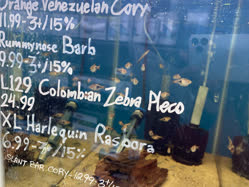 Orange Venezuelan Cory
11.99-3+/15%
Rummynose Barb
9.99-3+/15%
L129 Colombian Zebra Pleco
24.99
XL Harlequin Raspora
6.99-3+/15%
GIANT PAR CORY-12.99-3+/